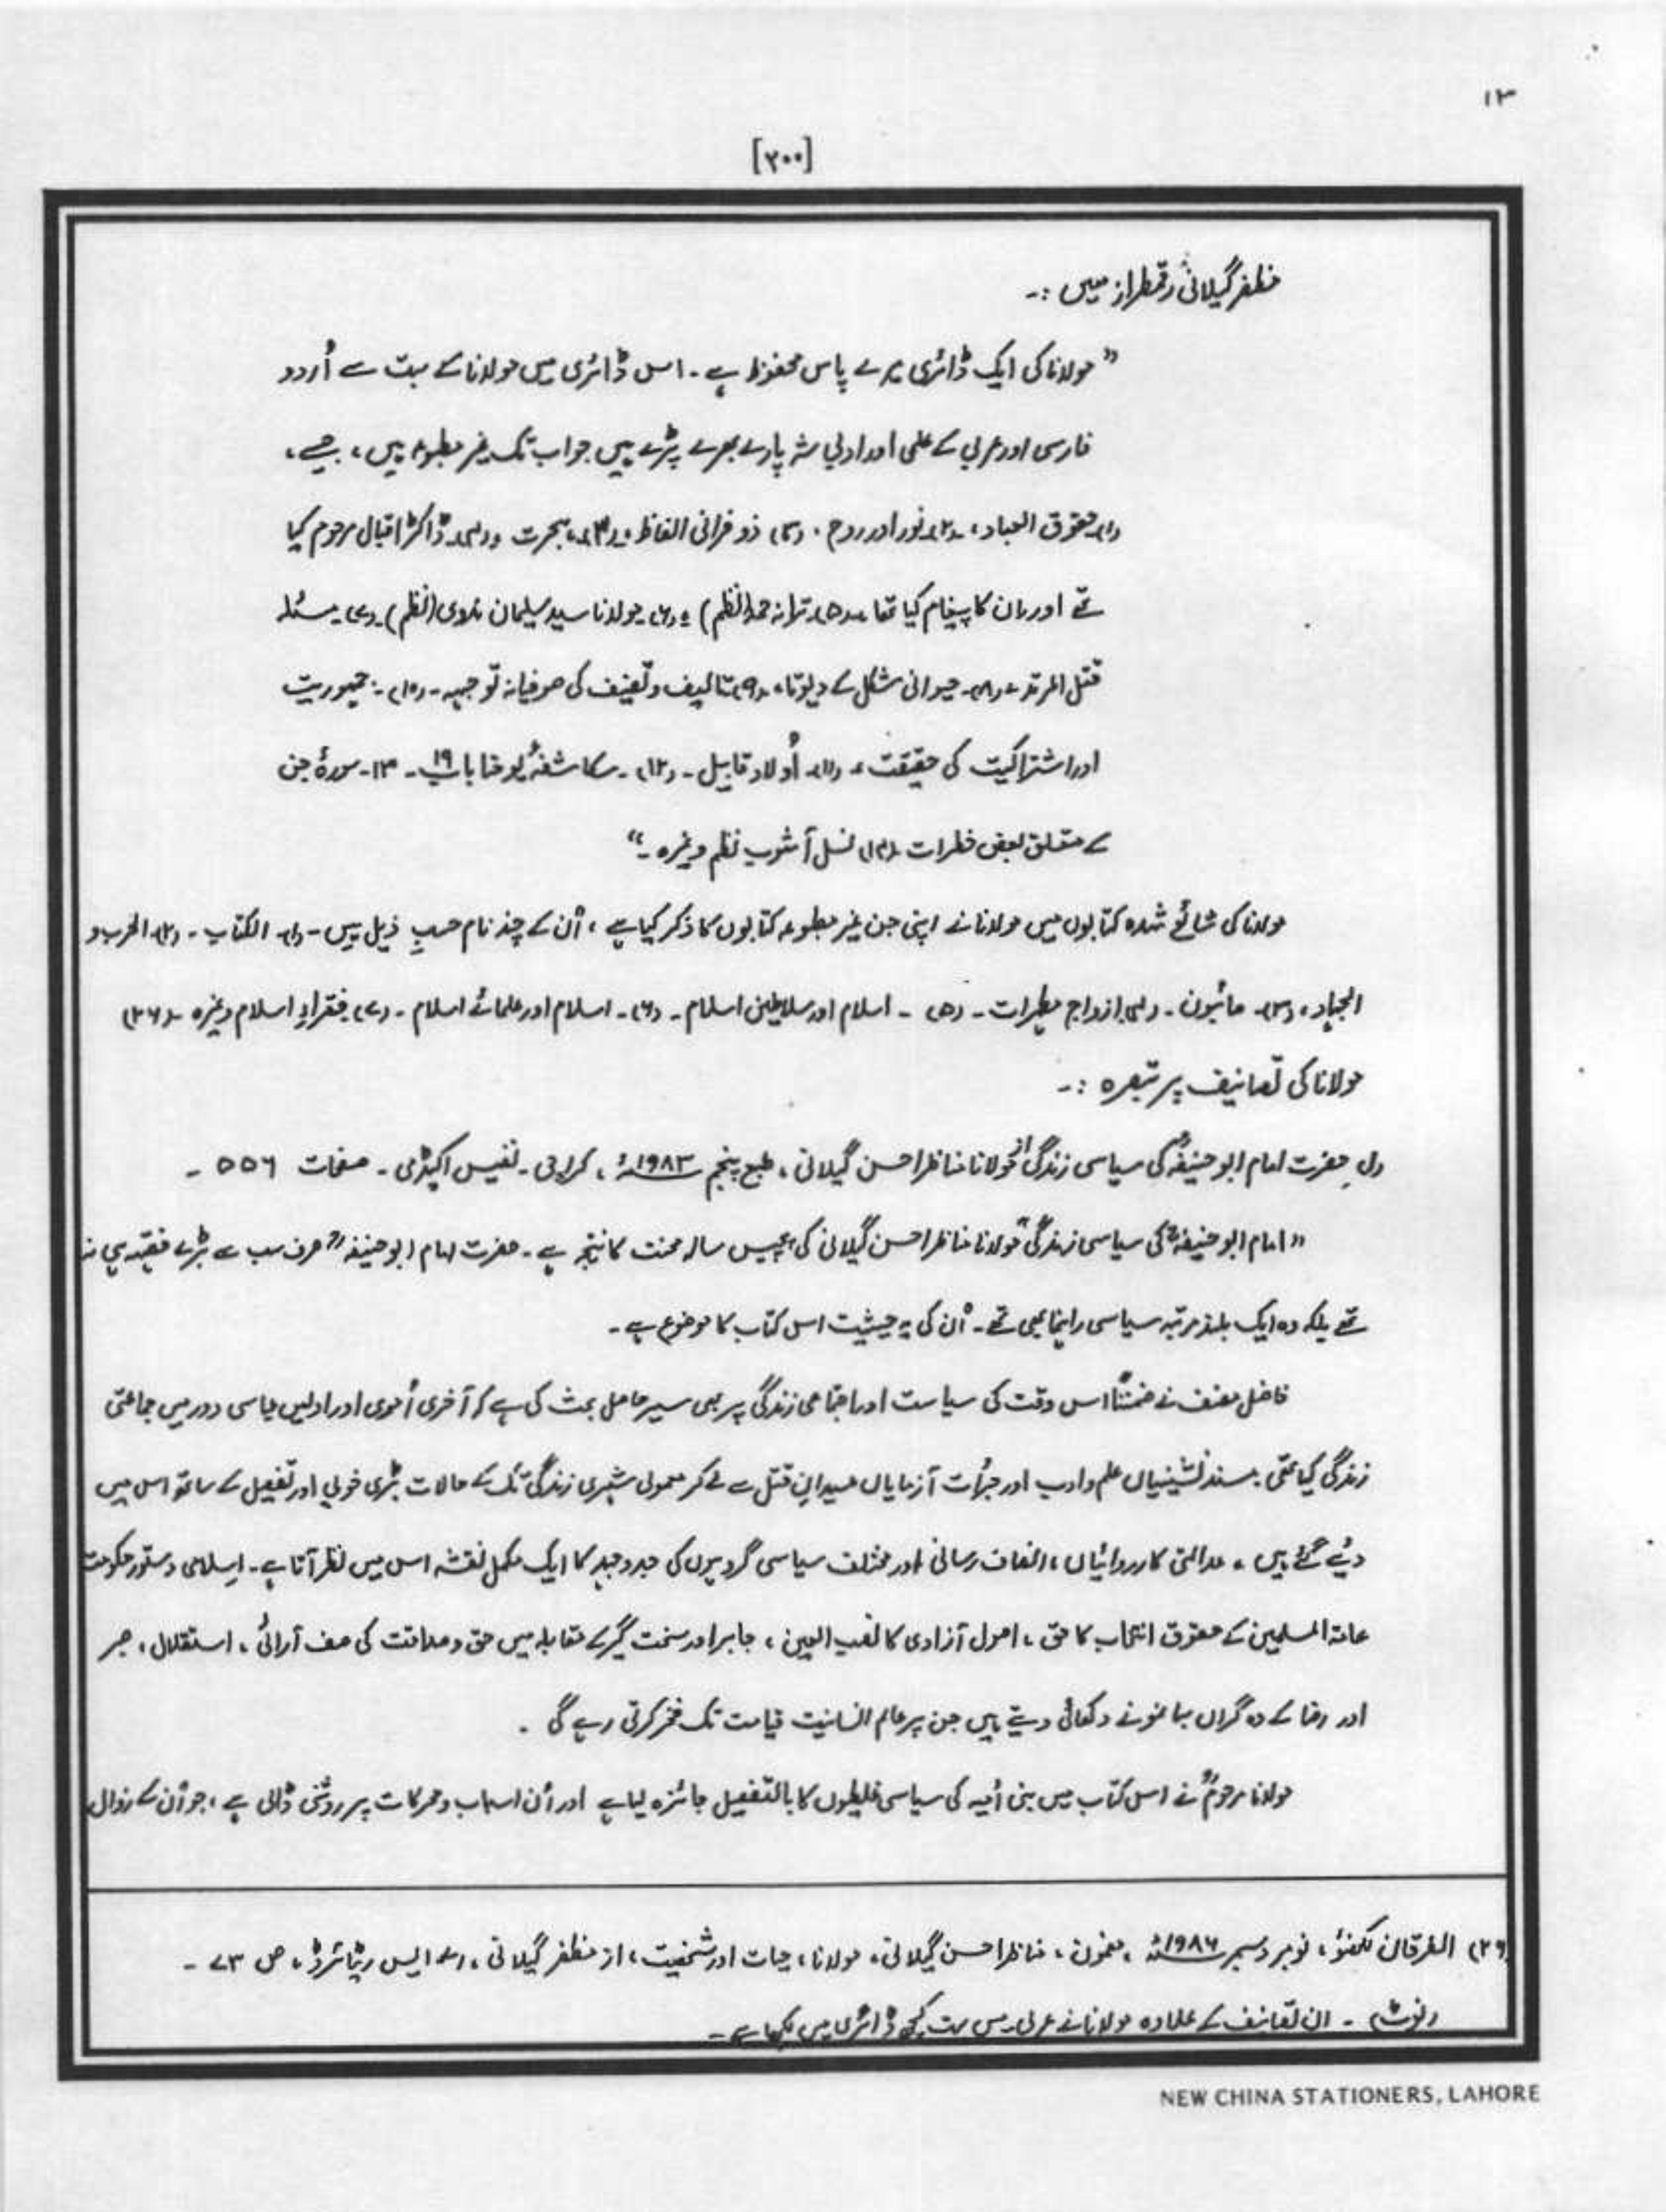 ۱۳
[۲۰۰]
مظفر گیلانیؒ رقمطراز ہیں :۔
” مولانا کی ایک ڈائری میرے پاس محفوظ ہے ۔ اس ڈائری میں مولانا کے بہت سے اُردو
فارسی اور عربی کے علمی اور ادبی شہ پارے بھرے پڑے ہیں جو اب تک غیر مطبوعہ ہیں ، جیسے ،
(۱) حقوق العباد ، (۲) نور اور روح ۔ (۳) ذو قرآنی الفاظ ، (۴) ہجرت ، ڈاکٹر اقبال مرحوم کیا
تھے اور ان کا پیغام کیا تھا ، (۵) ترانہ حمد (نظم) ، (۶) مولانا سید سلیمان ندوی (نظم) ۔ (۷) مسئلہ
قتل المرتد ، (۸) حیوانی شکل کے دیوتا ، (۹) تالیف و تصنیف کی صوفیانہ توجیہہ ۔ (۱۰) ۔ جمہوریت
اور اشتراکیت کی حقیقت ، (۱۱) اُولاد قابیل ۔ (۱۲) ۔ مکاشفۂ یوحنا باب ۱۹ ۔ ۱۳ ۔ سورۂ جن
کے متعلق بعض خطرات (۱۴) نسل آشوب نظم وغیرہ ۔“
مولانا کی شائع شدہ کتابوں میں مولانا نے اپنی جن غیر مطبوعہ کتابوں کا ذکر کیا ہے ، اُن کے چند نام حسبِ ذیل ہیں ۔ (۱) الکتاب ۔ (۲) الحرب و
الجہاد ، (۳) ماثبون ۔ (۴) ازواج مطہرات ۔ (۵) ۔ اسلام اور سلاطین اسلام ۔ (۶) ۔ اسلام اور علمائے اسلام ۔ (۷) فقراءِ اسلام وغیرہ ۔ (۲۶)
مولانا کی تصانیف پر تبصرہ :۔
(۱) حضرت امام ابو حنیفہؒ کی سیاسی زندگی از مولانا مناظر احسن گیلانی ، طبع پنجم ۱۹۸۳ء ، کراچی ۔ نفیس اکیڈمی ۔ صفحات ۵۵۶ ۔
” امام ابو حنیفہؒ کی سیاسی زندگی“ مولانا مناظر احسن گیلانی کی پچیس سالہ محنت کا نتیجہ ہے ۔ حضرت امام ابو حنیفہؒ صرف سب سے بڑے فقیہ ہی نہ
تھے بلکہ وہ ایک بلند مرتبہ سیاسی راہنما بھی تھے ۔ اُن کی یہ حیثیت اس کتاب کا موضوع ہے ۔
فاضل مصنف نے ضمناً اس وقت کی سیاست اور اجتماعی زندگی پر بھی سیر حاصل بحث کی ہے کہ آخری اُموی اور اولیں عباسی دور میں جماعتی
زندگی کیا تھی ؛ مسند نشینیاں علم و ادب اور جرأت آزمایاں میدانِ قتل سے لے کر معمولی شہری زندگی تک کے حالات بڑی خوبی اور تفصیل کے ساتھ اس میں
دیئے گئے ہیں ، عدالتی کارروائیاں ، انصاف رسانی اور مختلف سیاسی گروہوں کی جدوجہد کا ایک مکمل نقشہ اس میں نظر آتا ہے ۔ اسلامی دستور حکومت
عامۃ المسلمین کے حقوق انتخاب کا حق ، اصول آزادی کا نصب العین ، جابر اور سخت گیر کے مقابلہ میں حق و صداقت کی صف آرائی ، استقلال ، صبر
اور رضا کے وہ گراں بہا نمونے دکھائی دیتے ہیں جن پر عالم انسانیت قیامت تک فخر کرتی رہے گی ۔
مولانا مرحومؒ نے اس کتاب میں بنی اُمیہ کی سیاسی غلطیوں کا بالتفصیل جائزہ لیا ہے اور اُن اسباب و محرکات پر روشنی ڈالی ہے ، جو اُن کے زوال
(۲۶) الفرقان لکھنؤ ، نومبر دسمبر ۱۹۸۶ء ، مضمون ، مناظر احسن گیلانی ، مولانا ، حیات اور شخصیت ، از مظفر گیلانی ، اے ایس ریٹائرڈ ، ص ۷۳ ۔
(نوٹ) ۔ ان تصانیف کے علاوہ مولانا نے عربی میں بہت کچھ ڈائری میں لکھا ہے ۔
NEW CHINA STATIONERS, LAHORE